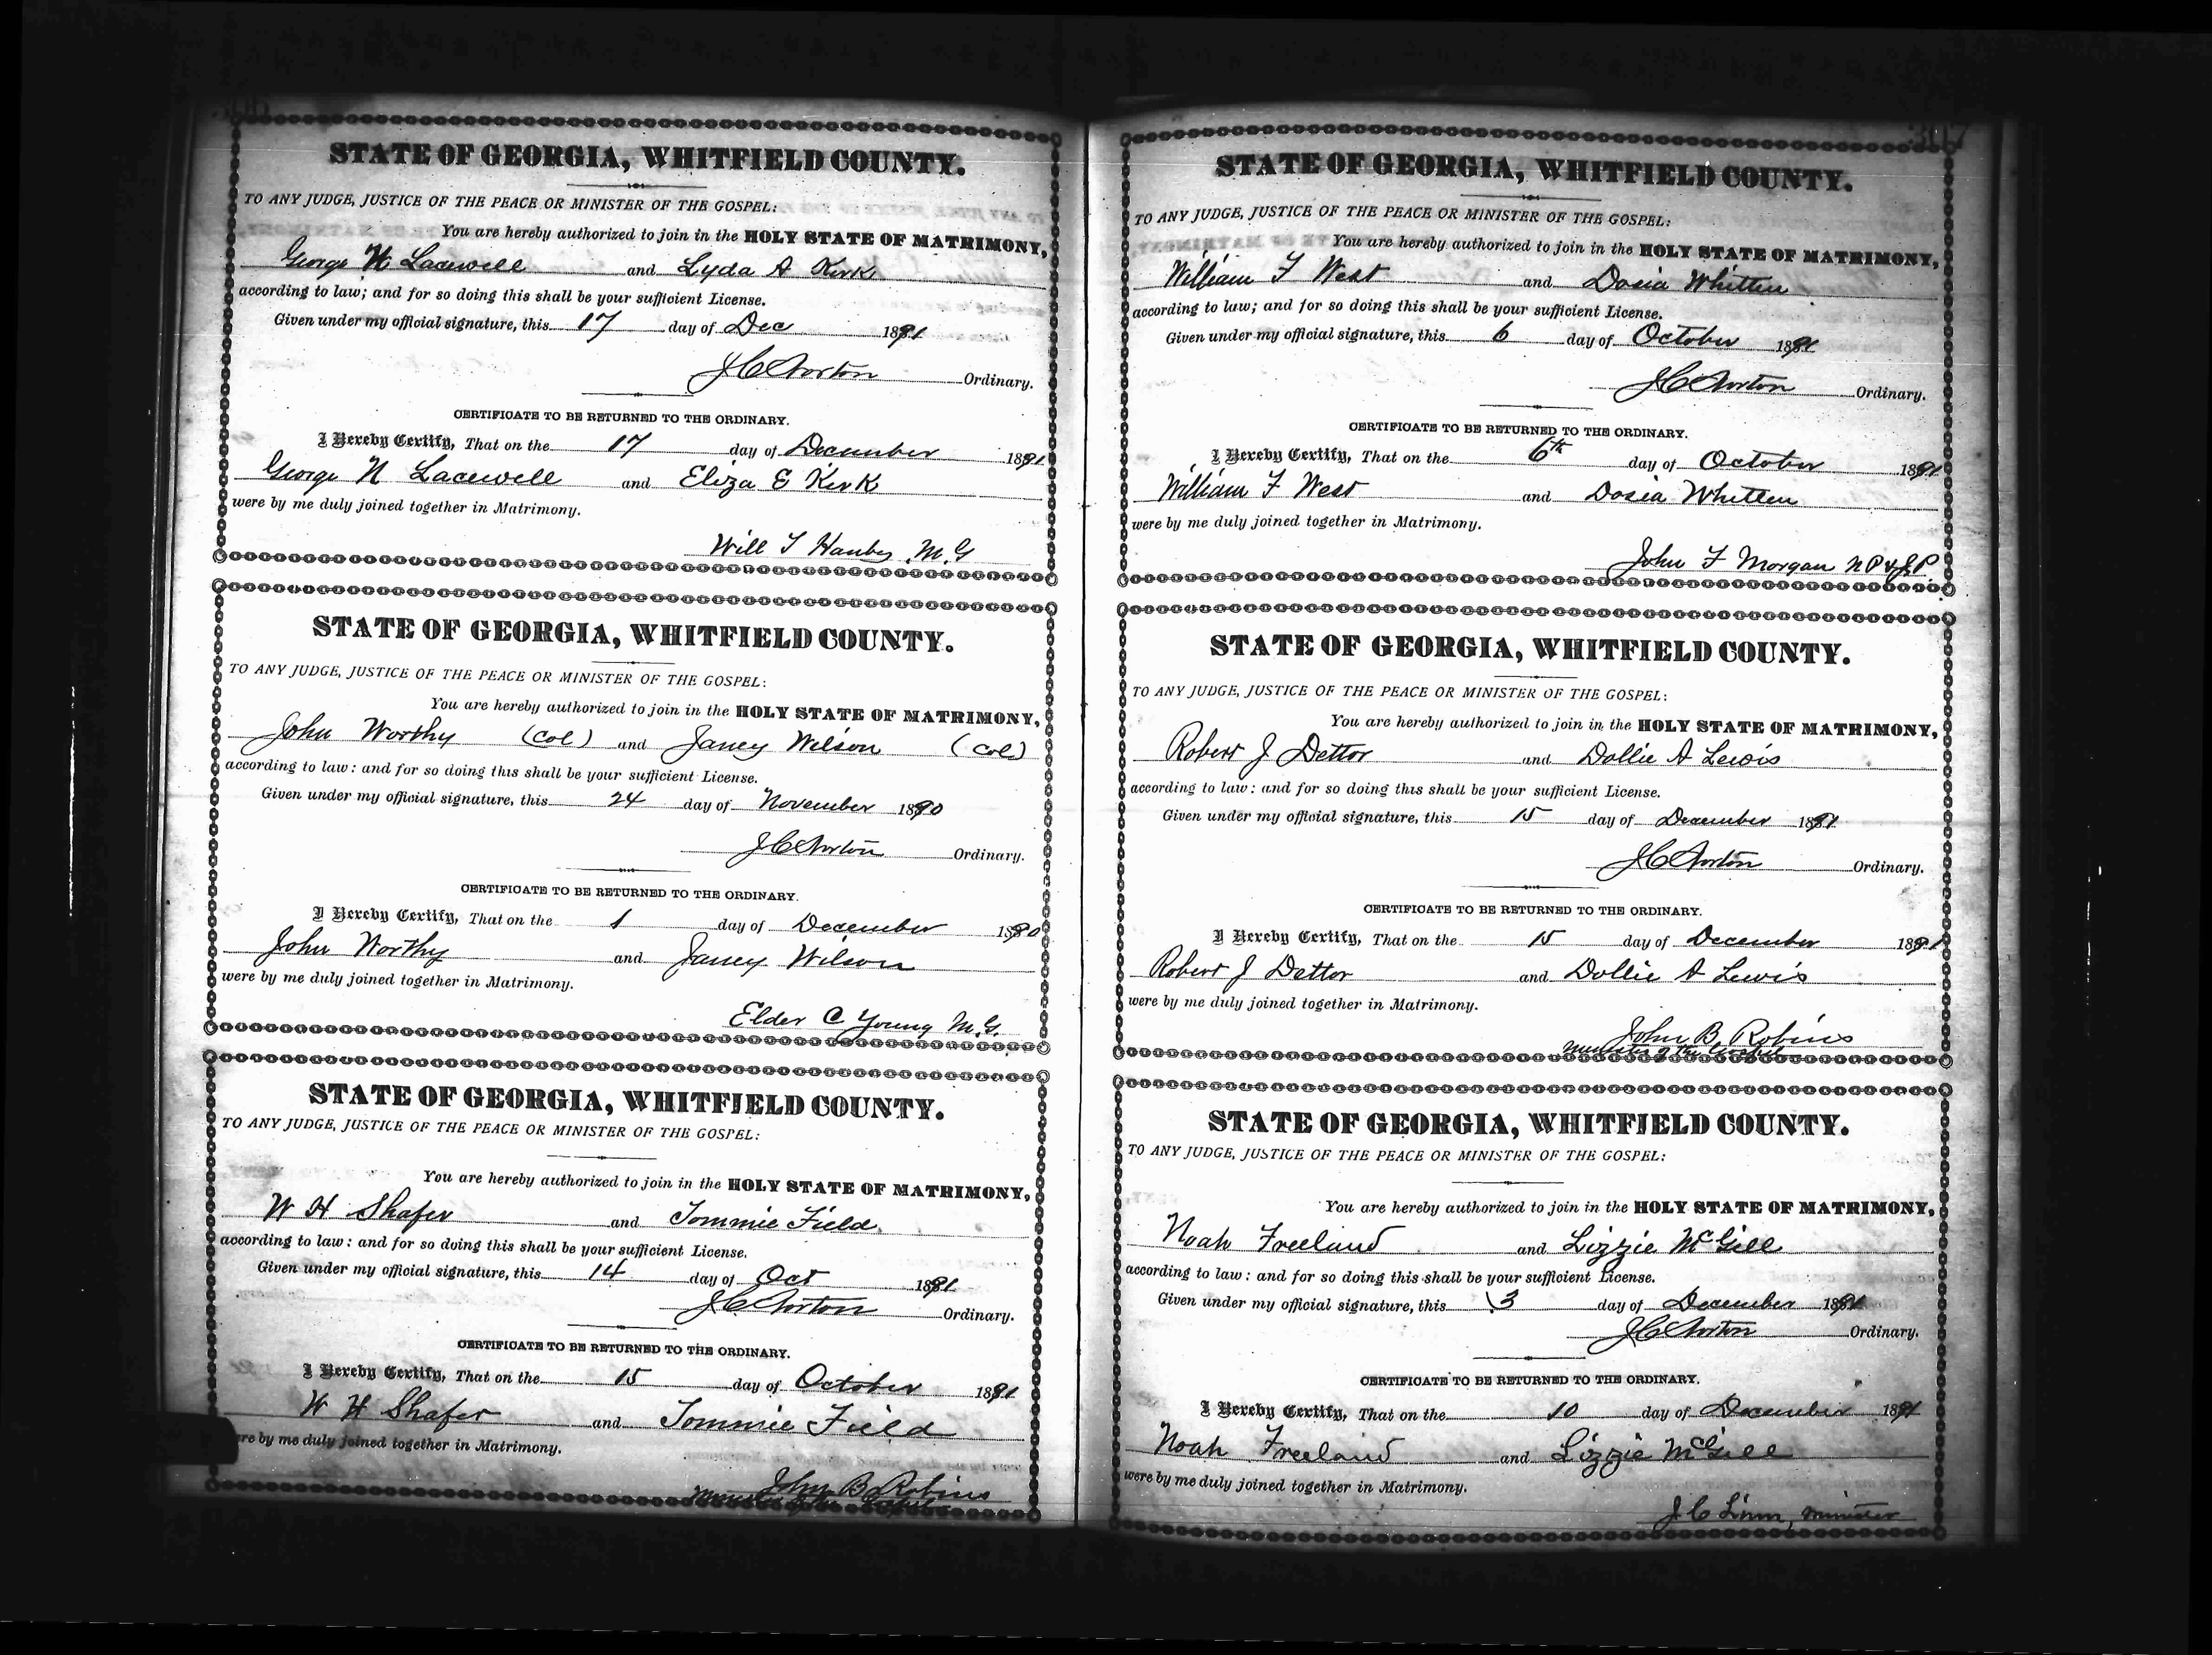 306
STATE OF GEORGIA, WHITFIELD COUNTY.
TO ANY JUDGE, JUSTICE OF THE PEACE OR MINISTER OF THE GOSPEL:
You are hereby authorized to join in the HOLY STATE OF MATRIMONY,
George N Lacewell and Lyda A Kirk
according to law; and for so doing this shall be your sufficient License.
Given under my official signature, this 17 day of Dec 1891
J C Norton Ordinary.
CERTIFICATE TO BE RETURNED TO THE ORDINARY.
I Hereby Certify, That on the 17 day of December 1891
George N Lacewell and Eliza E Kirk
were by me duly joined together in Matrimony.
Will T Hanby M.G
STATE OF GEORGIA, WHITFIELD COUNTY.
TO ANY JUDGE, JUSTICE OF THE PEACE OR MINISTER OF THE GOSPEL:
You are hereby authorized to join in the HOLY STATE OF MATRIMONY,
John Worthy (Col) and Janey Wilson (Col)
according to law: and for so doing this shall be your sufficient License.
Given under my official signature, this 24 day of November 1890
J C Norton Ordinary.
CERTIFICATE TO BE RETURNED TO THE ORDINARY.
I Hereby Certify, That on the 1 day of December 1890
John Worthy and Janey Wilson
were by me duly joined together in Matrimony.
Elder C Young M.G.
STATE OF GEORGIA, WHITFIELD COUNTY.
TO ANY JUDGE, JUSTICE OF THE PEACE OR MINISTER OF THE GOSPEL:
You are hereby authorized to join in the HOLY STATE OF MATRIMONY,
W H Shafer and Tommie Field
according to law: and for so doing this shall be your sufficient License.
Given under my official signature, this 14 day of Oct 1891
J C Norton Ordinary.
CERTIFICATE TO BE RETURNED TO THE ORDINARY.
I Hereby Certify, That on the 15 day of October 1891
W H Shafer and Tommie Field
were by me duly joined together in Matrimony.
John B Robins
Minister of the Gospel
307
STATE OF GEORGIA, WHITFIELD COUNTY.
TO ANY JUDGE, JUSTICE OF THE PEACE OR MINISTER OF THE GOSPEL:
You are hereby authorized to join in the HOLY STATE OF MATRIMONY,
William F West and Dosia Whitten
according to law; and for so doing this shall be your sufficient License.
Given under my official signature, this 6 day of October 1891
J C Norton Ordinary.
CERTIFICATE TO BE RETURNED TO THE ORDINARY.
I Hereby Certify, That on the 6th day of October 1891
William F West and Dosia Whitten
were by me duly joined together in Matrimony.
John F Morgan N P & J P
STATE OF GEORGIA, WHITFIELD COUNTY.
TO ANY JUDGE, JUSTICE OF THE PEACE OR MINISTER OF THE GOSPEL:
You are hereby authorized to join in the HOLY STATE OF MATRIMONY,
Robert J Dettor and Dollie A Lewis
according to law: and for so doing this shall be your sufficient License.
Given under my official signature, this 15 day of December 1891
J C Norton Ordinary.
CERTIFICATE TO BE RETURNED TO THE ORDINARY.
I Hereby Certify, That on the 15 day of December 1891
Robert J Dettor and Dollie A Lewis
were by me duly joined together in Matrimony.
John B. Robins
Minister of the Gospel
STATE OF GEORGIA, WHITFIELD COUNTY.
TO ANY JUDGE, JUSTICE OF THE PEACE OR MINISTER OF THE GOSPEL:
You are hereby authorized to join in the HOLY STATE OF MATRIMONY,
Noah Freeland and Lizzie McGill
according to law: and for so doing this shall be your sufficient License.
Given under my official signature, this 3 day of December 1891
J C Norton Ordinary.
CERTIFICATE TO BE RETURNED TO THE ORDINARY.
I Hereby Certify, That on the 10 day of December 1891
Noah Freeland and Lizzie McGill
were by me duly joined together in Matrimony.
J C Linn, minister